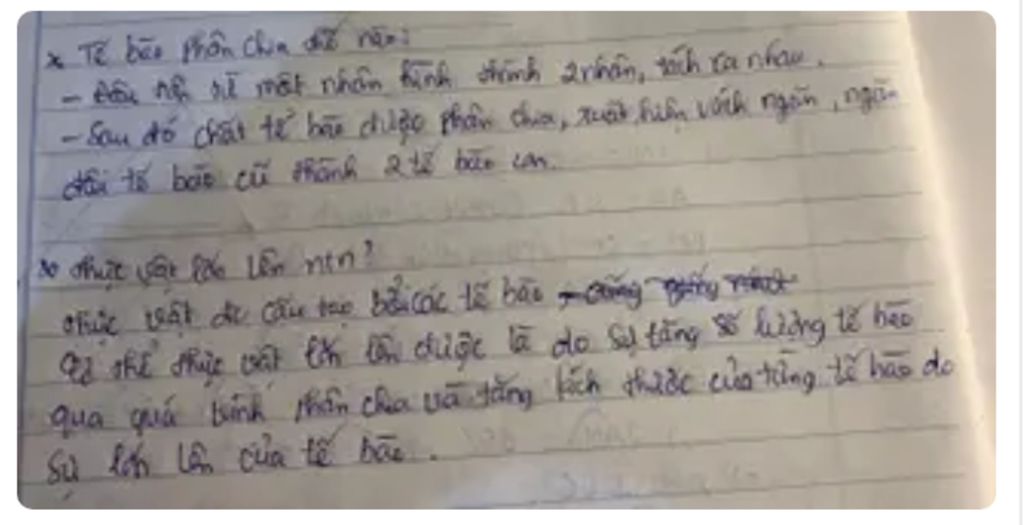 * Tế bào phân chia thế nào?
- Đầu tiên từ một nhân hình thành 2 nhân, tách ra nhau.
- Sau đó chất tế bào được phân chia, xuất hiện vách ngăn, ngăn
đôi tế bào cũ thành 2 tế bào con.
* thực vật lớn lên ntn?
thực vật đc cấu tạo bởi các tế bào
cơ thể thực vật lớn lên được là do sự tăng số lượng tế bào
qua quá trình phân chia và tăng kích thước của từng tế bào do
sự lớn lên của tế bào.